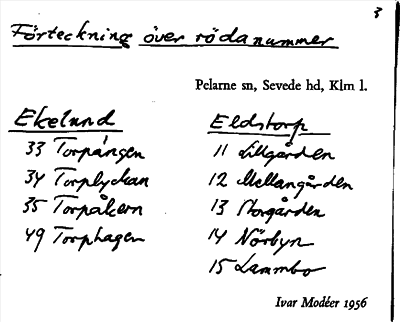 3
Förteckning över röda nummer
Pelarne sn, Sevede hd, Klm l.
Ekelund
33 Torpängen
34 Torplyckan
35 Torpåkern
49 Torphagen
Eldstorp
11 Lillgården
12 Mellangården
13 Storgården
14 Nörbyn
15 Lammbo
Ivar Modéer 1956